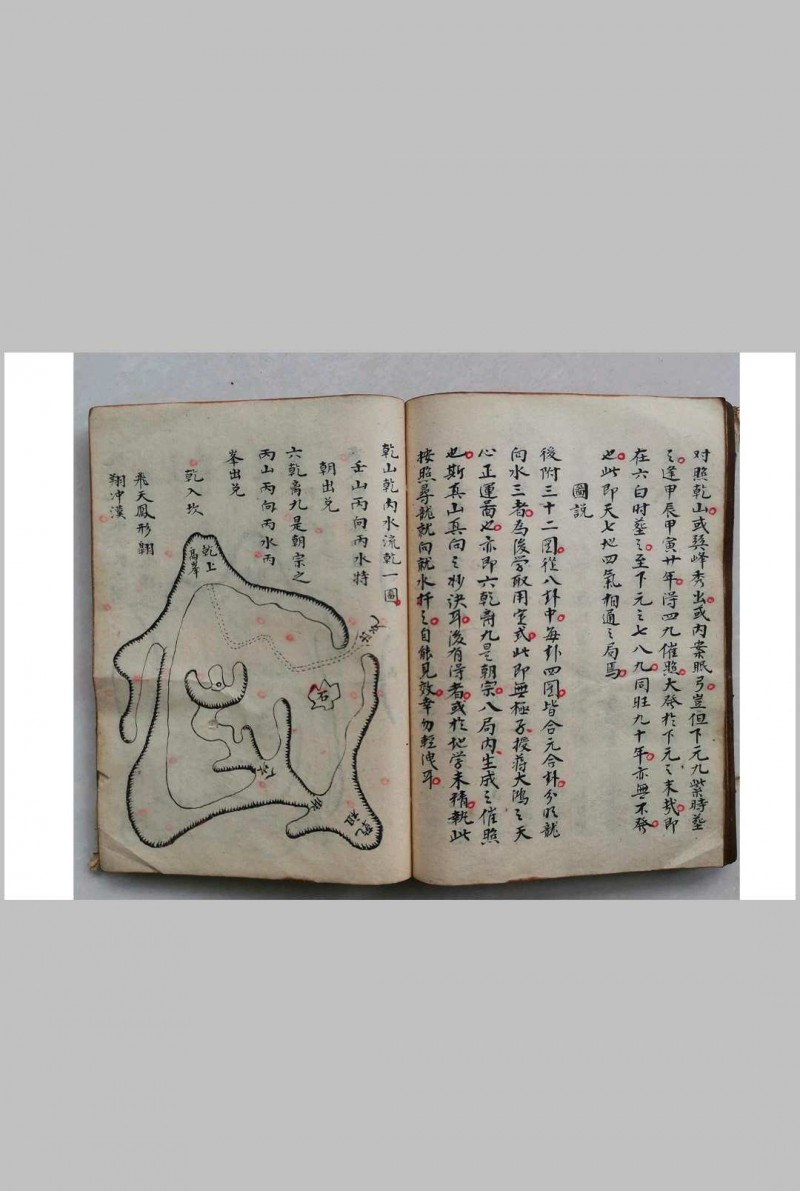 对照乾山或巽峰秀出或内案眠弓豈但下元九紫時塟
之逢甲辰甲寅廿年得四九催照大發於下元之末哉即
在六白时塟之至下元之七八九同旺九十年亦無不發
也此即天七地四氣相通之局焉
圖説
後附三十二圖從八卦中每卦四圖皆合元合卦分明龍
向水三者為後学取用室式此即無極子授蒋大鴻之天
心正運啚也亦即六乾离九是朝宗八局内生成之催照
也斯真山真向之妙決耳後有得者或於地学未精執此
按照尋龍就向就水扦之自能見效幸勿輕洩耳
乾山乾向水流乾一圖
壬山丙向丙水特
朝出兑
六乾离九是朝宗之
丙山丙向丙水丙
峯出兑
乾入坎
飛天鳳形翺
翔冲漢
乾上
高峯
石
乾祖